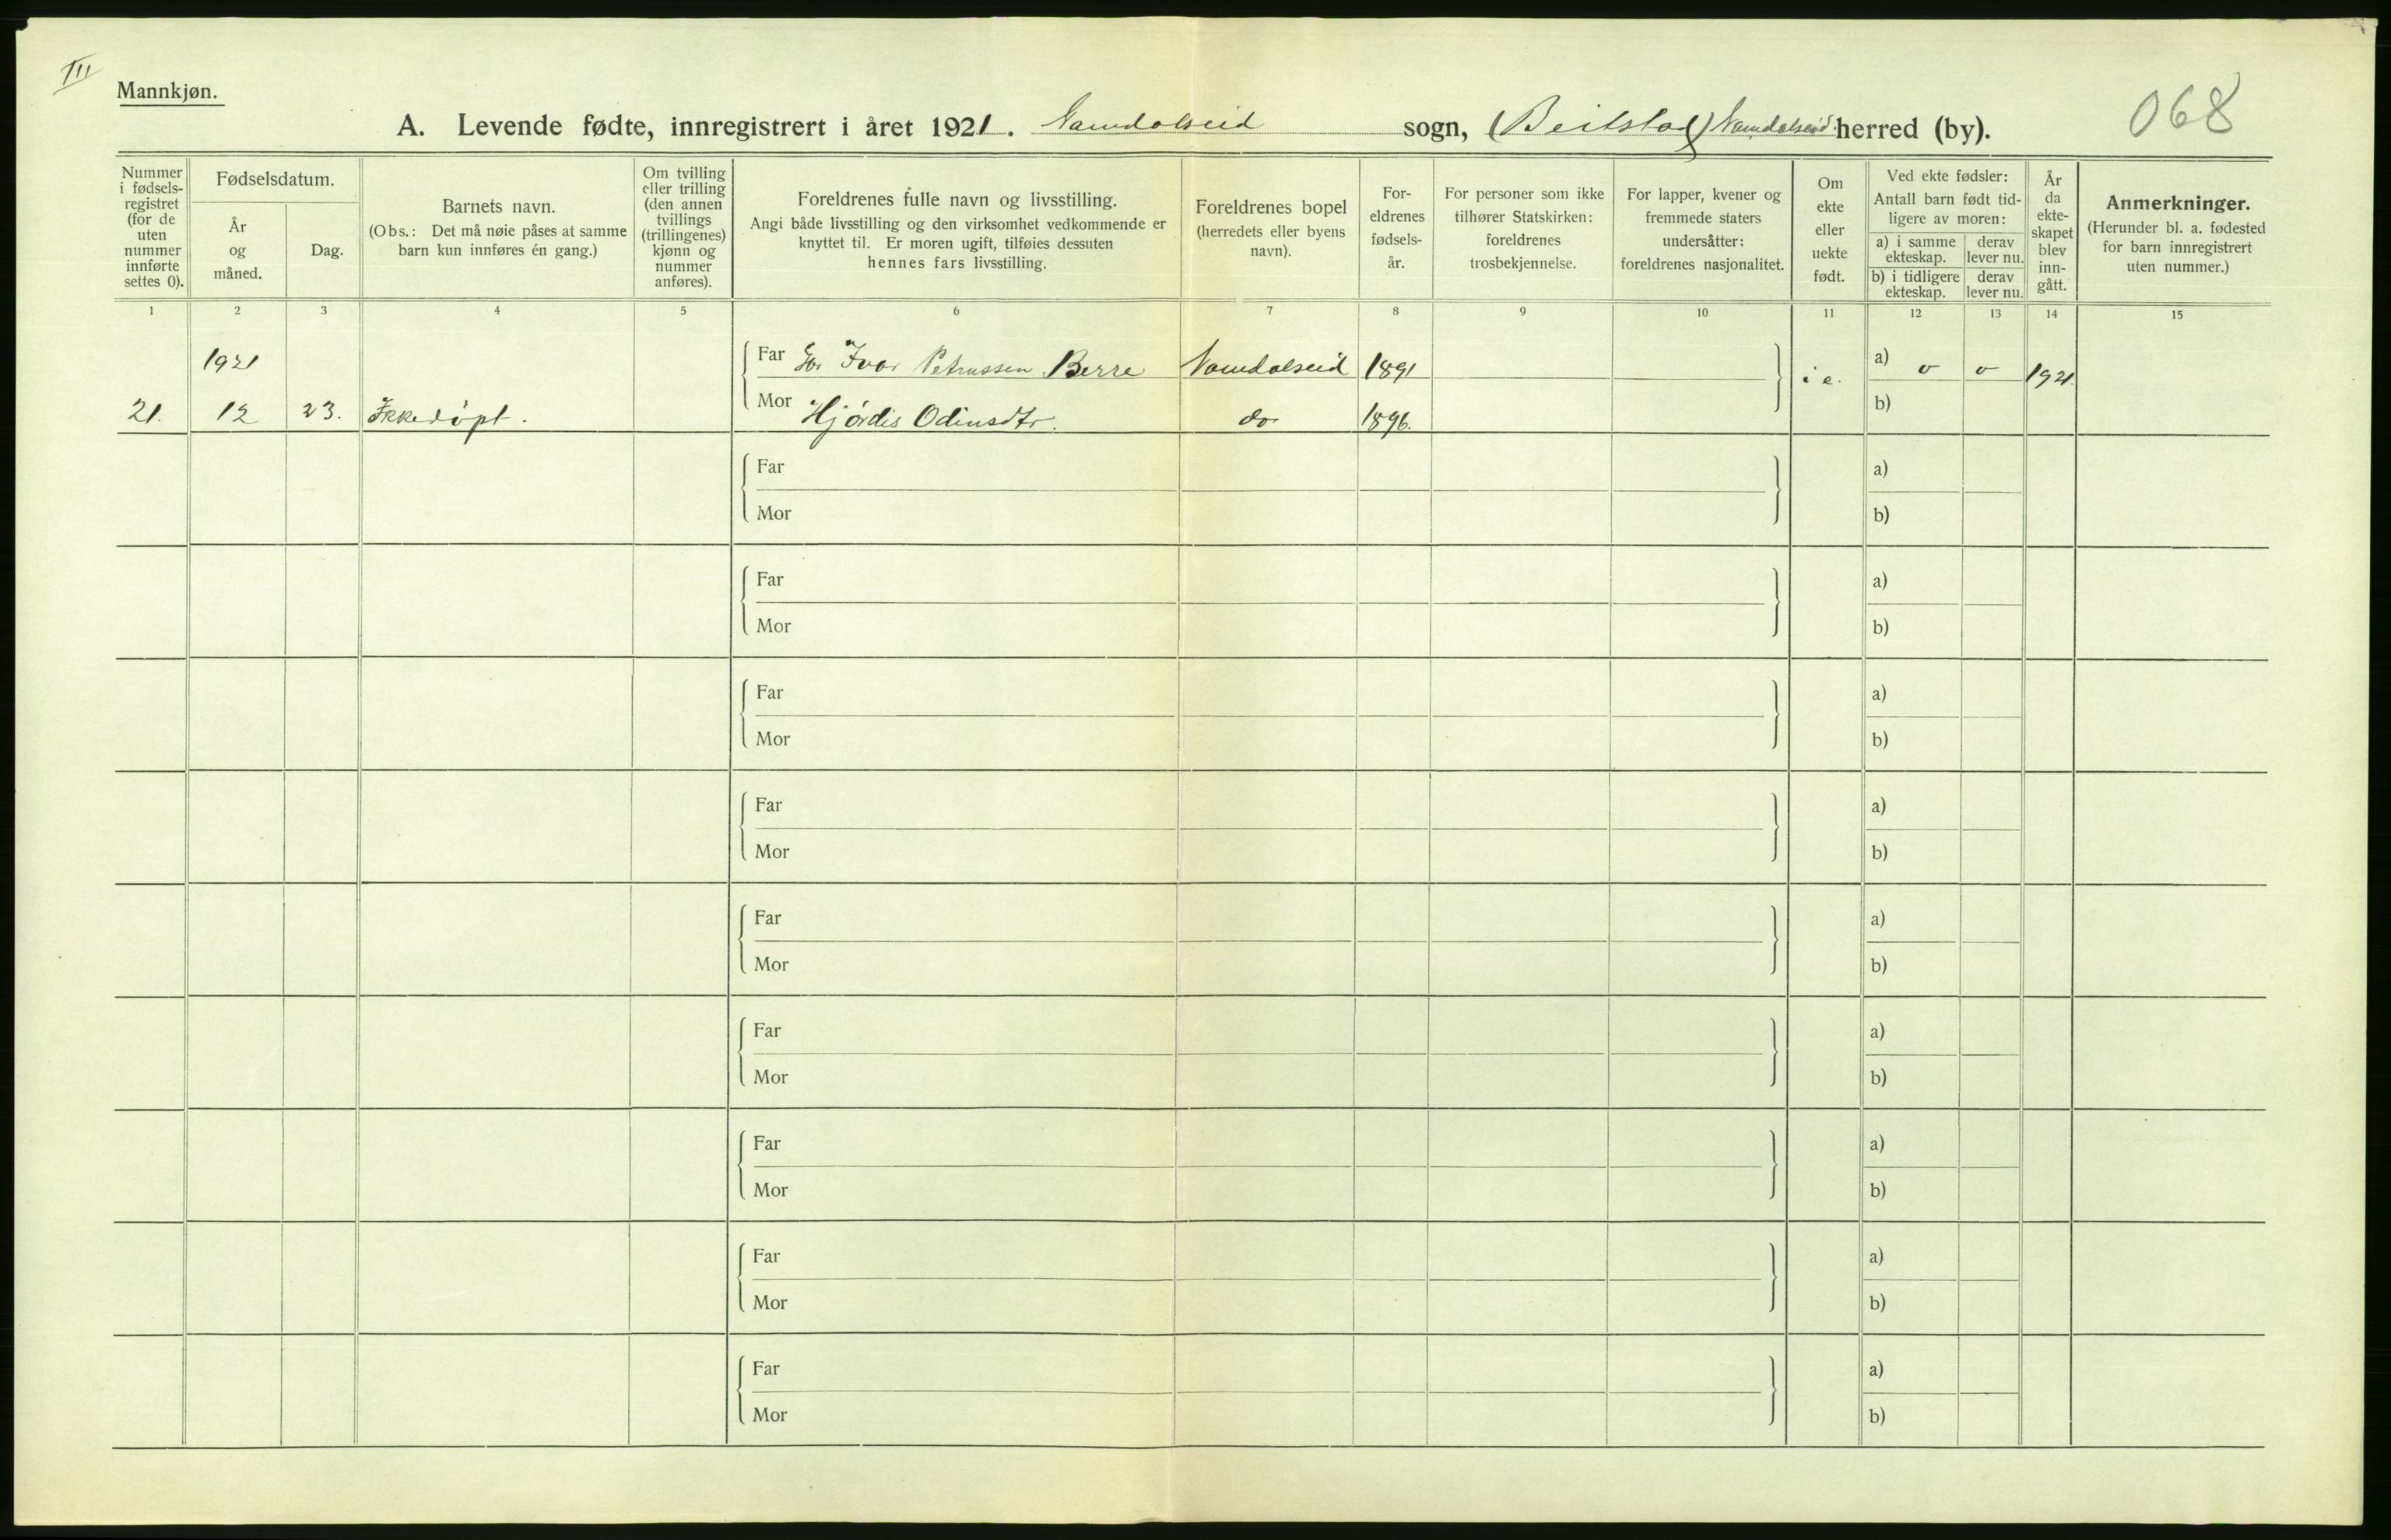 III
Mannkjøn.
A. Levende fødte, innregistrert i året 1921. Namdalseid sogn, (Beitstad) Namdalseid herred (by).
068
Nummer i fødsels-registret (for de uten nummer innførte settes 0).
Fødselsdatum.
År og måned.
Dag.
Barnets navn.
(Obs.: Det må nøie påses at samme barn kun innføres én gang.)
Om tvilling eller trilling (den annen tvillings (trillingenes) kjønn og nummer anføres).
Foreldrenes fulle navn og livsstilling.
Angi både livsstilling og den virksomhet vedkommende er knyttet til. Er moren ugift, tilføies dessuten hennes fars livsstilling.
Foreldrenes bopel (herredets eller byens navn).
For-eldrenes fødsels-år.
For personer som ikke tilhører Statskirken: foreldrenes trosbekjennelse.
For lapper, kvener og fremmede staters undersåtter: foreldrenes nasjonalitet.
Om ekte eller uekte født.
Ved ekte fødsler:
Antall barn født tid-ligere av moren:
a) i samme ekteskap.
derav lever nu.
b) i tidligere ekteskap.
derav lever nu.
År da ekte-skapet blev inn-gått.
Anmerkninger.
(Herunder bl. a. fødested for barn innregistrert uten nummer.)
1 2 3 4 5 6 7 8 9 10 11 12 13 14 15
1921
Far Ivar Petrussen Berre Namdalseid 1891
i e. a) 0 0 1921.
21. 12 23. Ikke døpt.
Mor Hjördis Odinsdtr. do 1896.
b)
Far a)
Mor b)
Far a)
Mor b)
Far a)
Mor b)
Far a)
Mor b)
Far a)
Mor b)
Far a)
Mor b)
Far a)
Mor b)
Far a)
Mor b)
Far a)
Mor b)